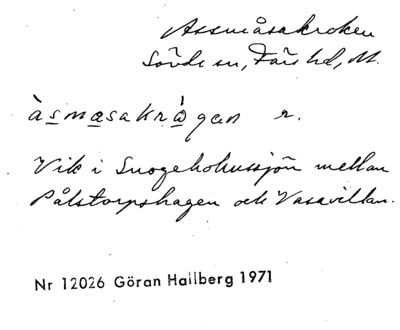 Assmåsakroken
Sövde sn, Färs hd, M.
àsmasakrágan r.
Vik i Snogeholmssjön mellan
Pålstorpshagen och Vasavillan.
Nr 12026 Göran Hallberg 1971